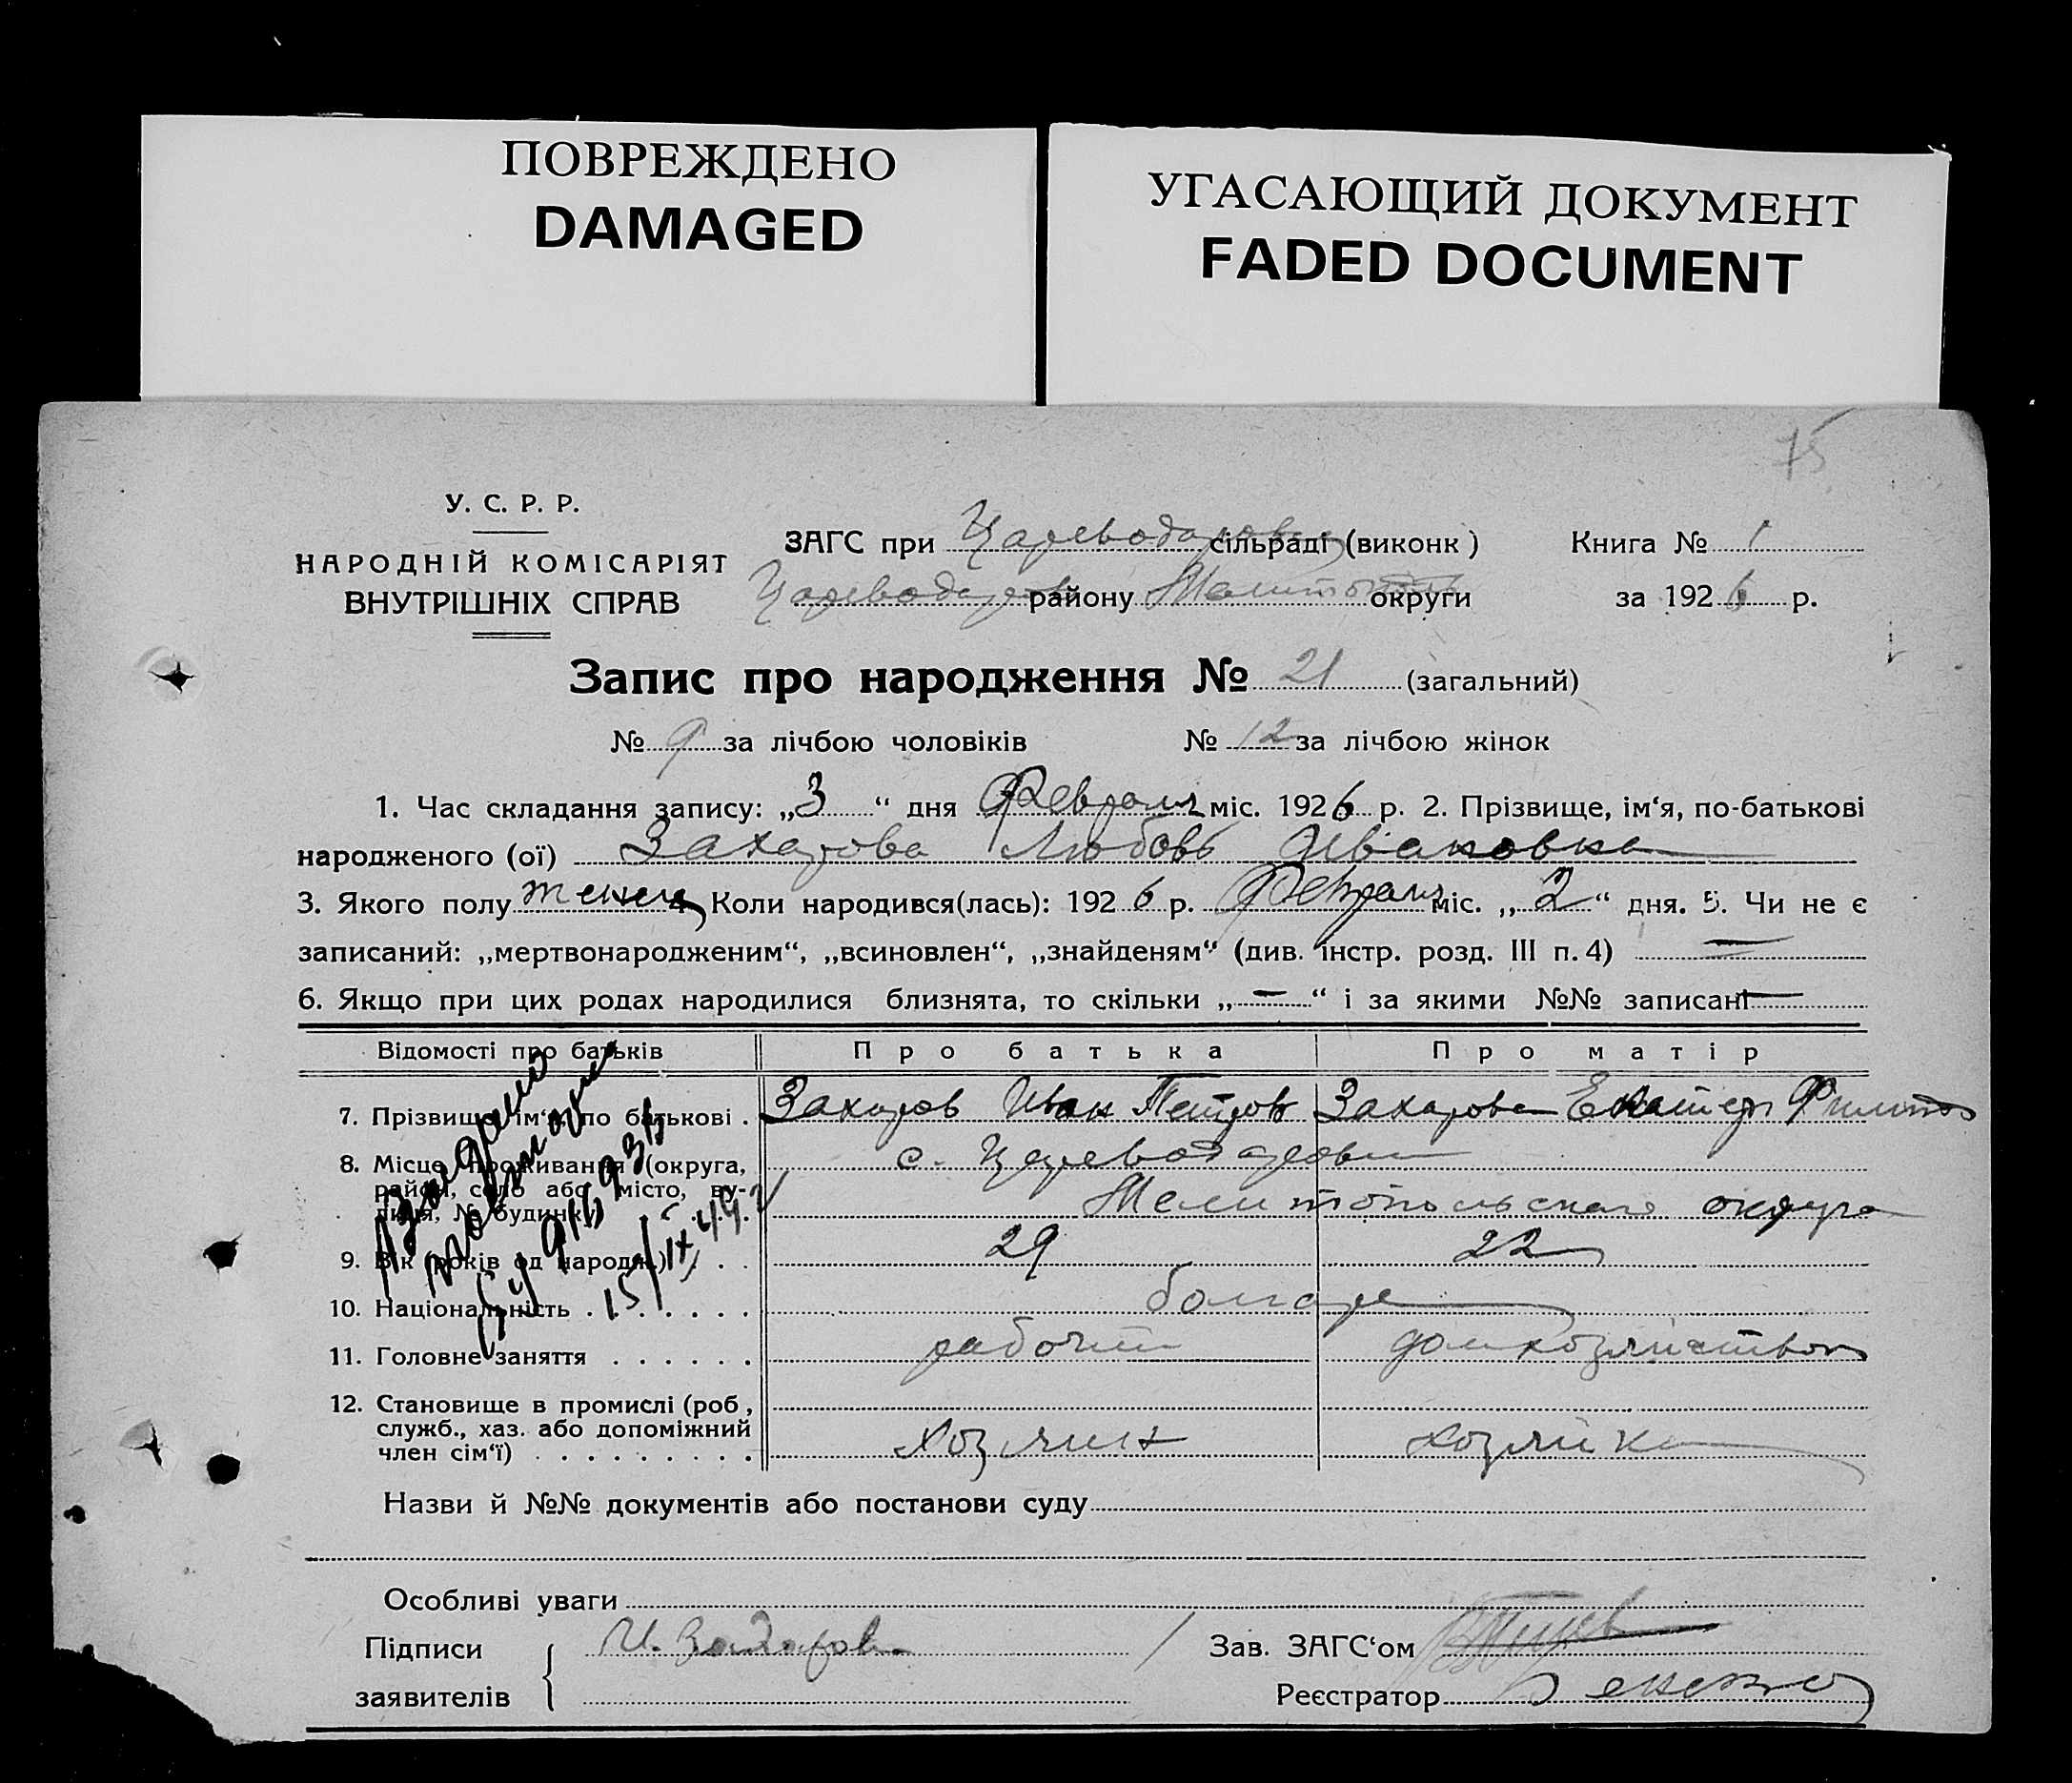 ПОВРЕЖДЕНО
DAMAGED
УГАСАЮЩИЙ ДОКУМЕНТ
FADED DOCUMENT
75
У. С. Р. Р.
НАРОДНІЙ КОМІСАРІЯТ
ВНУТРІШНІХ СПРАВ
ЗАГС при Цареводаровск сільраді (виконк)
Книга № 1
Цареводар району Мелитополь округи
за 1926 р.
Запис про народження № 21 (загальний)
№ 9 за лічбою чоловіків № 12 за лічбою жінок
1. Час складання запису: „3“ дня Февраля міс. 1926 р. 2. Прізвище, ім‘я, по-батькові
народженого (ої) Захарова Любовь Ивановна
3. Якого полу женск 4. Коли народився(лась): 1926 р. Февраля міс. „2“ дня. 5. Чи не є
записаний: „мертвонародженим“, „всиновлен“, „знайденям“ (див. інстр. розд. III п. 4) —
6. Якщо при цих родах народилися близнята, то скільки „—“ і за якими №№ записані —
Відомості про батьків Про батька Про матір
7. Прізвище, ім‘я, по батькові . Захаров Иван Петров Захарова Екатер Филипов
8. Місце проживання (округа,
район, село або місто, ву-
лиця, № будинку)
с. Цареводаровка
Мелитопольского округа
9. Вік (років од народж.) . . . 29 22
10. Національність . . . . . . . болгаре
11. Головне заняття . . . . . . рабочий домхозяйством
12. Становище в промислі (роб.,
служб., хаз. або допоміжний
член сім‘ї) . . . . . . . . . хозяин хозяйка
Выдано
повторно
15/IX 49 г.
Назви й №№ документів або постанови суду
Особливі уваги
Підписи
заявителів
И. Захаров
Зав. ЗАГС‘ом
Реєстратор